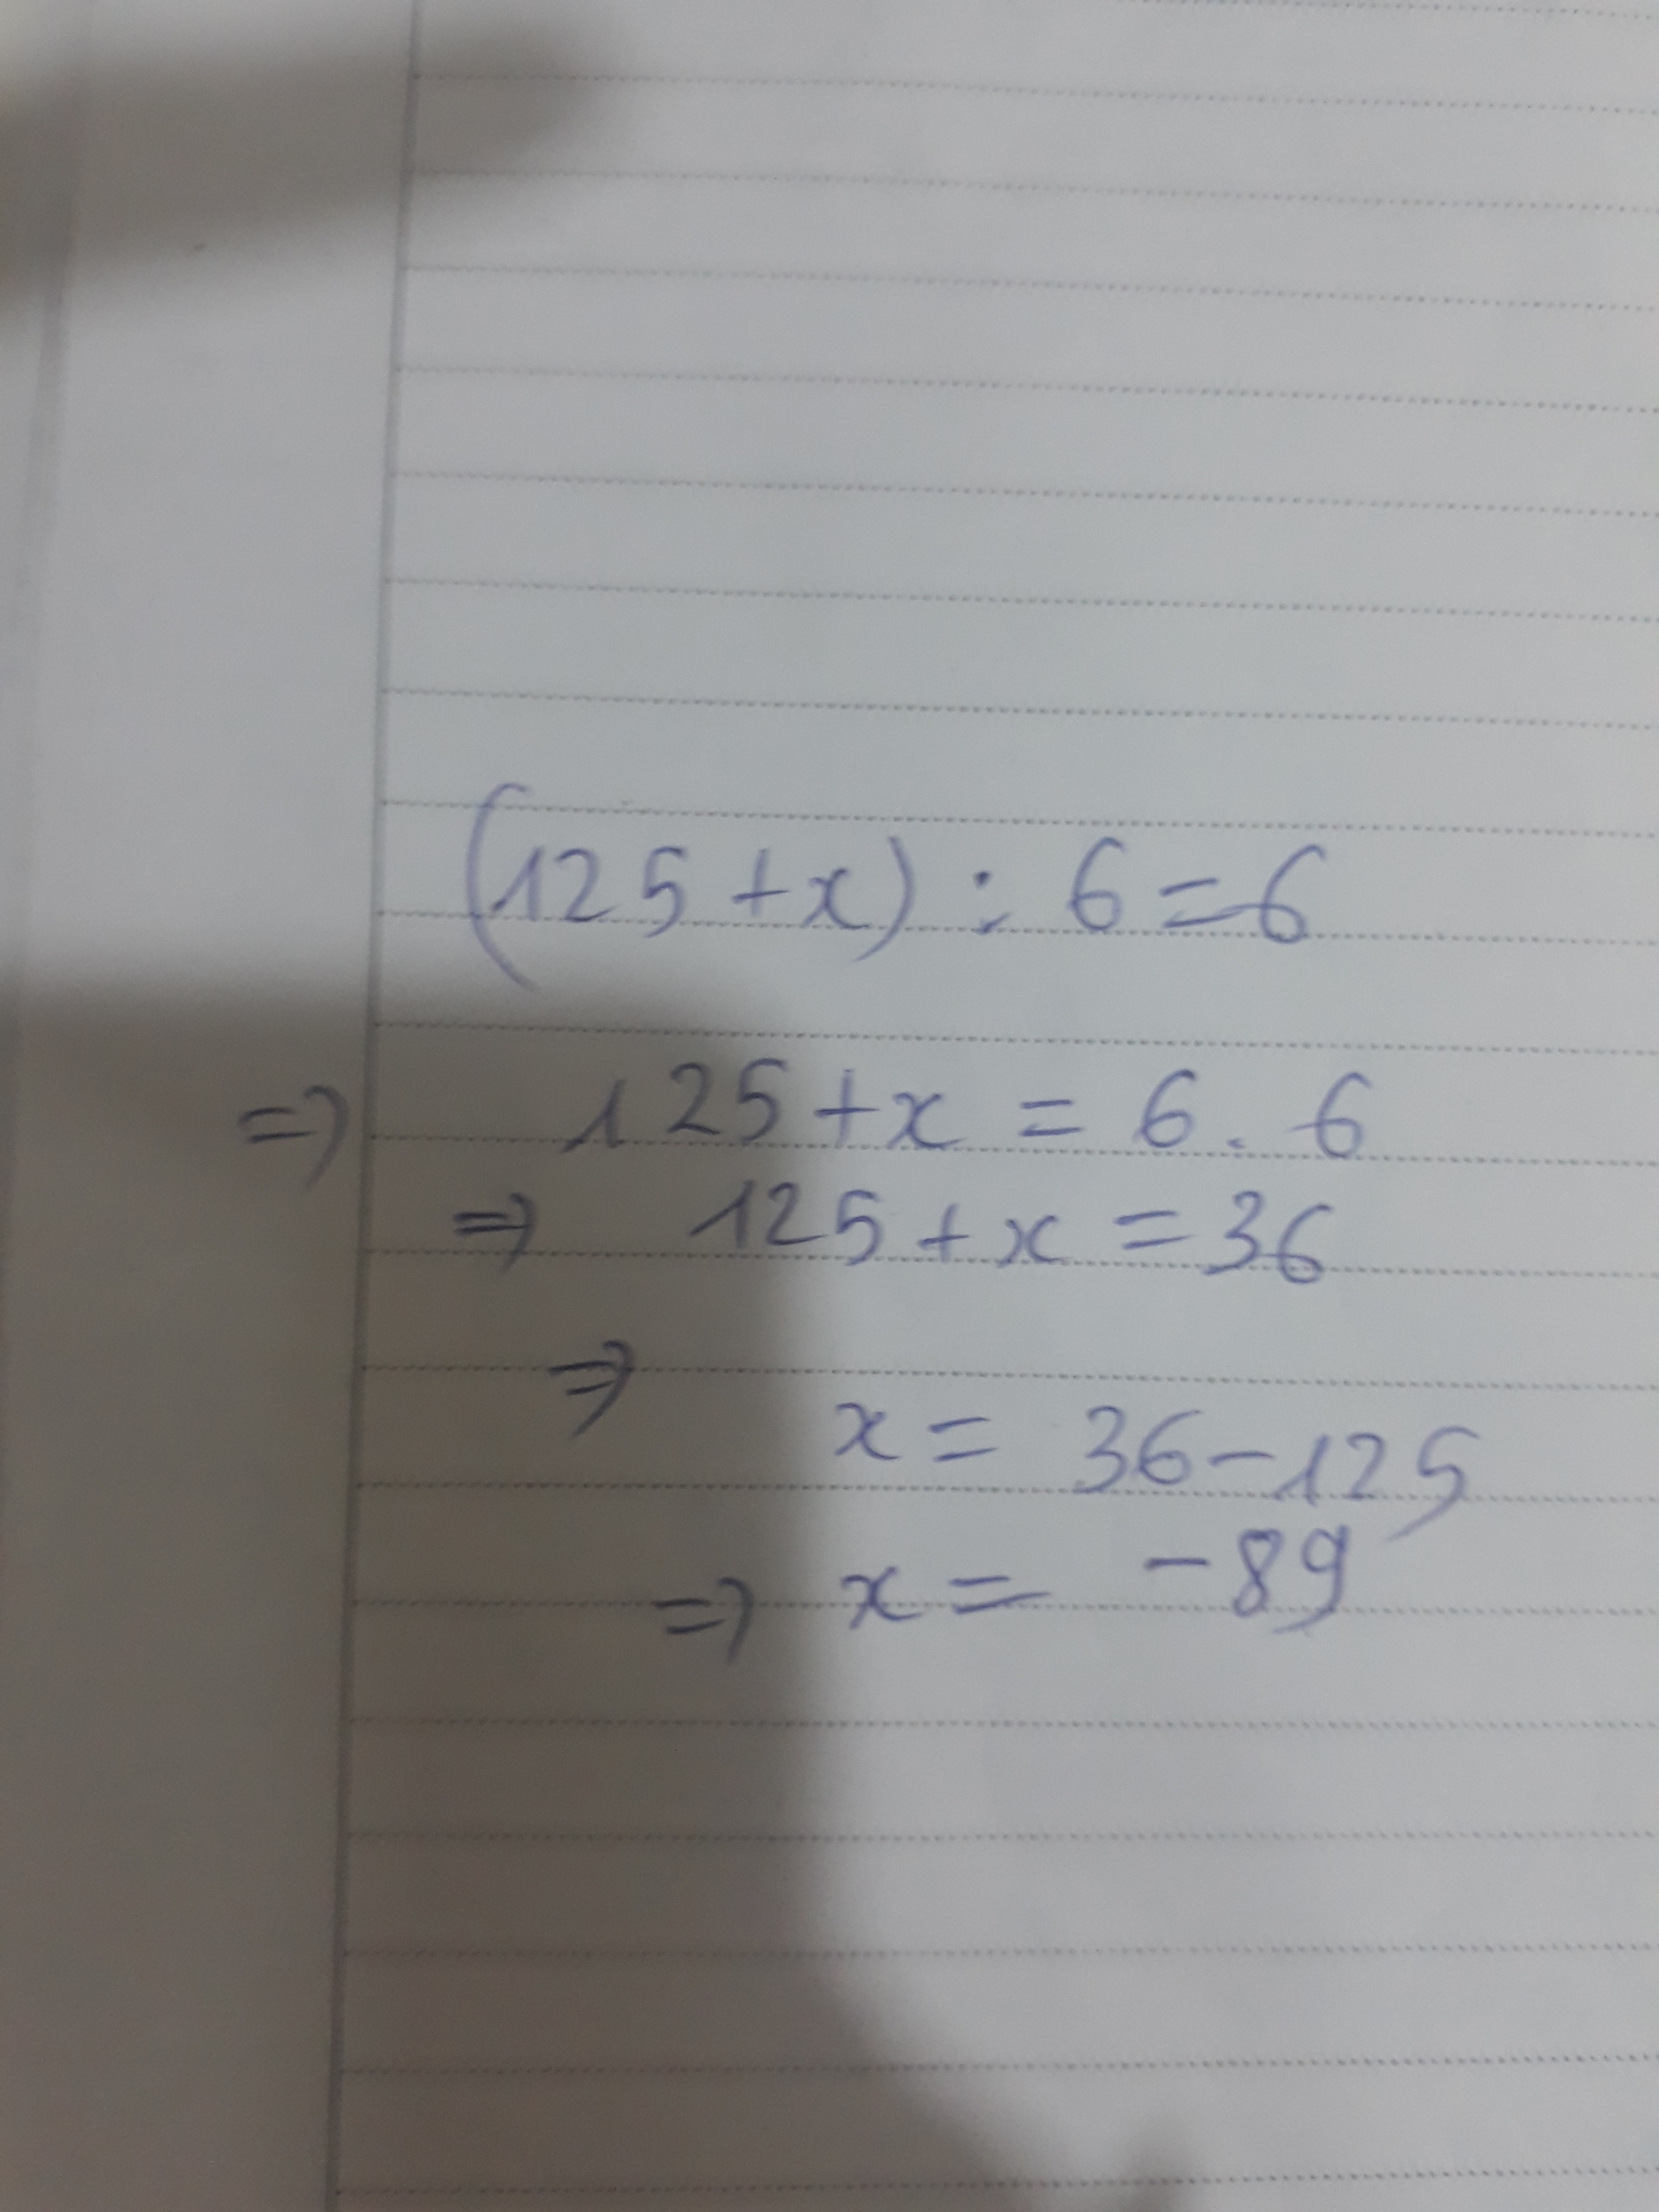 (125 + x) : 6 = 6
=> 125 + x = 6 . 6
=> 125 + x = 36
=> x = 36 - 125
=> x = - 89